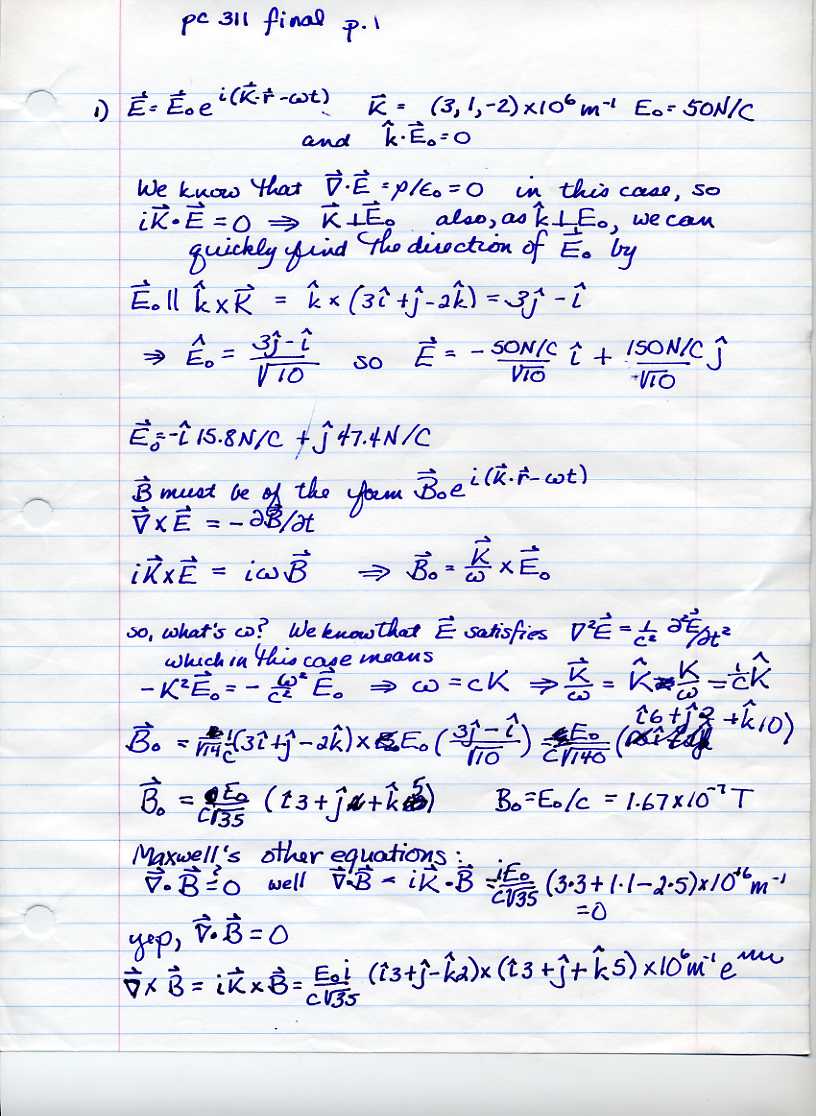 pc 311 final p.1
1) E⃗ = E⃗₀e^{i(K⃗·r⃗-ωt)} K⃗ = (3, 1, -2)×10⁶ m⁻¹ E₀ = 50N/C
and k̂·E⃗₀ = 0
We know that ∇⃗·E⃗ = ρ/ε₀ = 0 in this case, so
iK⃗·E⃗ = 0 ⇒ K⃗⊥E⃗₀ also, as k̂⊥E₀, we can
quickly find the direction of E⃗₀ by
E⃗₀ ∥ k̂×K⃗ = k̂×(3î+ĵ-2k̂) = 3ĵ - î
⇒ Ê₀ = (3ĵ-î)/√10 so E⃗ = - 50N/C/√10 î + 150N/C/√10 ĵ
E⃗₀ = -î 15.8N/C + ĵ 47.4N/C
B⃗ must be of the form B⃗₀e^{i(K⃗·r⃗-ωt)}
∇⃗×E⃗ = -∂B⃗/∂t
iK⃗×E⃗ = iωB⃗ ⇒ B⃗₀ = K⃗/ω × E⃗₀
so, what's ω? We know that E⃗ satisfies ∇²E⃗ = 1/c² ∂²E⃗/∂t²
which in this case means
-K²E⃗₀ = - ω²/c² E⃗₀ ⇒ ω = cK ⇒ K⃗/ω = K̂ K/ω = 1/c K̂
B⃗₀ = 1/√14 1/c (3î+ĵ-2k̂)×E₀((3ĵ-î)/√10) = E₀/c√140 (î6+ĵ2+k̂10)
B⃗₀ = E₀/c√35 (î3+ĵ+k̂5) B₀=E₀/c = 1.67×10⁻⁷ T
Maxwell's other equations:
∇⃗·B⃗ ≟ 0 well ∇⃗·B⃗ = iK⃗·B⃗ = iE₀/c√35 (3·3+1·1-2·5)×10⁺⁶m⁻¹
=0
yep, ∇⃗·B⃗ = 0
∇⃗×B⃗ = iK⃗×B⃗ = E₀i/c√35 (î3+ĵ-k̂2)×(î3+ĵ+k̂5)×10⁶m⁻¹ e